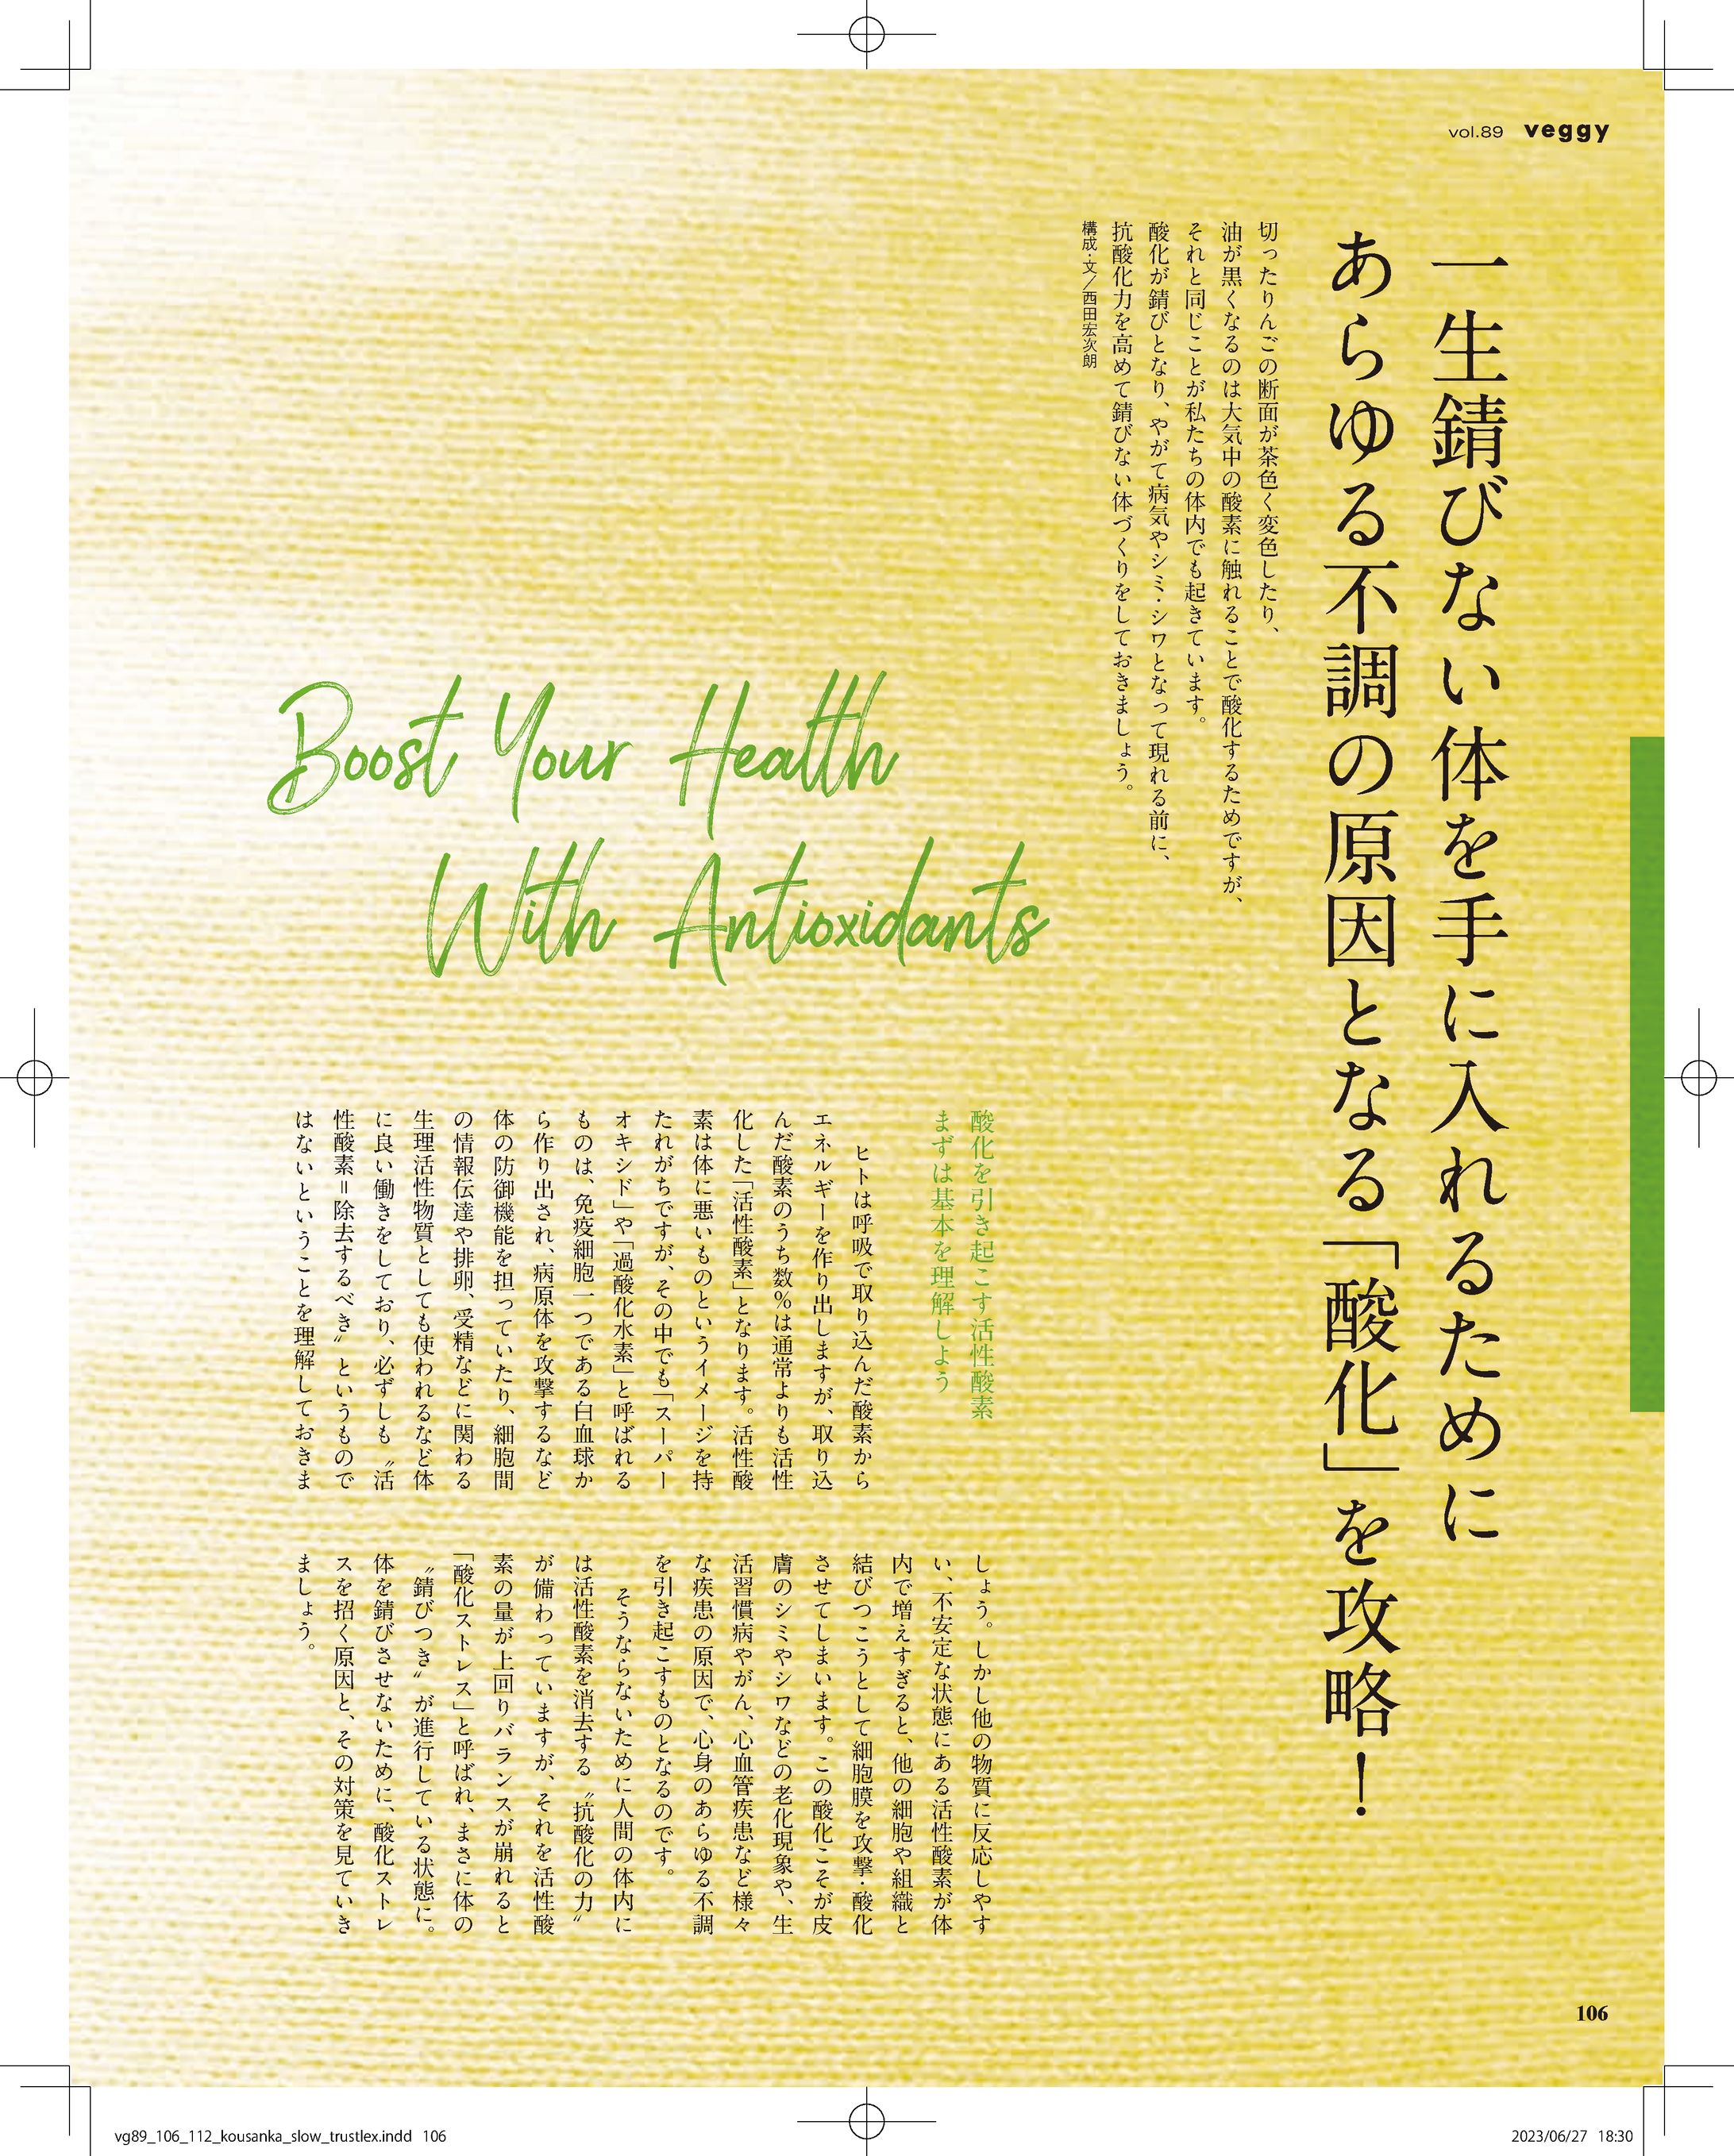 vol.89 veggy
一生錆びない体を手に入れるために
あらゆる不調の原因となる「酸化」を攻略！
切ったりんごの断面が茶色く変色したり、
油が黒くなるのは大気中の酸素に触れることで酸化するためですが、
それと同じことが私たちの体内でも起きています。
酸化が錆びとなり、やがて病気やシミ・シワとなって現れる前に、
抗酸化力を高めて錆びない体づくりをしておきましょう。
構成・文／西田宏次朗
Boost Your Health
With Antioxidants
酸化を引き起こす活性酸素
まずは基本を理解しよう
ヒトは呼吸で取り込んだ酸素から
エネルギーを作り出しますが、取り込
んだ酸素のうち数％は通常よりも活性
化した「活性酸素」となります。活性酸
素は体に悪いものというイメージを持
たれがちですが、その中でも「スーパー
オキシド」や「過酸化水素」と呼ばれる
ものは、免疫細胞一つである白血球か
ら作り出され、病原体を攻撃するなど
体の防御機能を担っていたり、細胞間
の情報伝達や排卵、受精などに関わる
生理活性物質としても使われるなど体
に良い働きをしており、必ずしも〝活
性酸素＝除去するべき〟というもので
はないということを理解しておきま
しょう。しかし他の物質に反応しやす
い、不安定な状態にある活性酸素が体
内で増えすぎると、他の細胞や組織と
結びつこうとして細胞膜を攻撃・酸化
させてしまいます。この酸化こそが皮
膚のシミやシワなどの老化現象や、生
活習慣病やがん、心血管疾患など様々
な疾患の原因で、心身のあらゆる不調
を引き起こすものとなるのです。
そうならないために人間の体内に
は活性酸素を消去する〝抗酸化の力〟
が備わっていますが、それを活性酸
素の量が上回りバランスが崩れると
「酸化ストレス」と呼ばれ、まさに体の
〝錆びつき〟が進行している状態に。
体を錆びさせないために、酸化ストレ
スを招く原因と、その対策を見ていき
ましょう。
106
vg89_106_112_kousanka_slow_trustlex.indd 106
2023/06/27 18:30